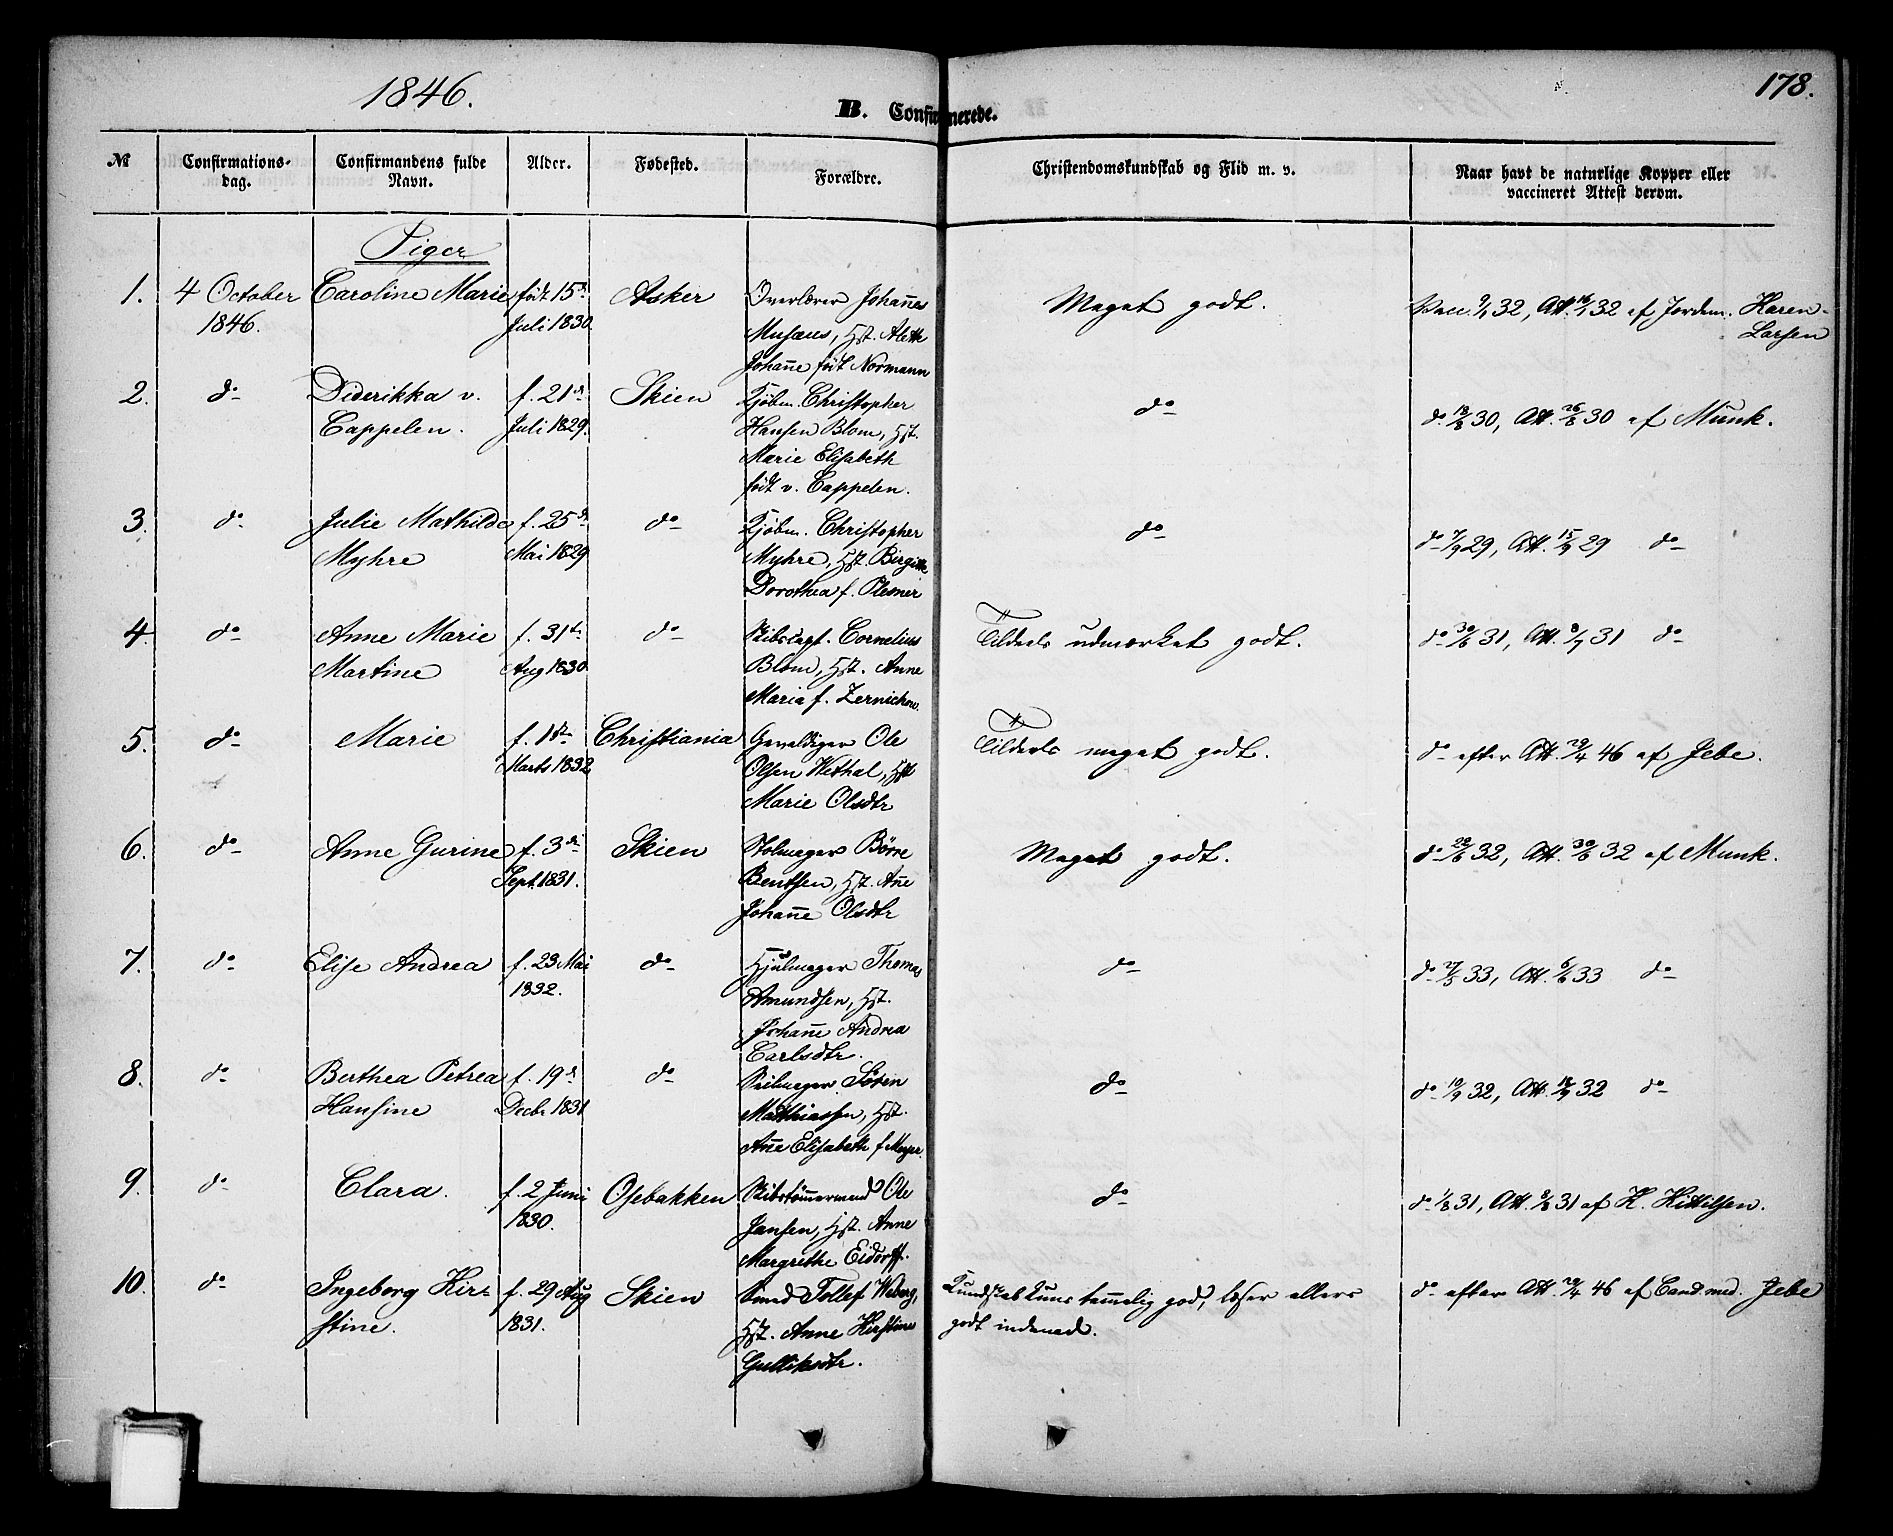 1846.
178.
B. Confirmerede.
№
Confirmations-
dag.
Confirmandens fulde
Navn.
Alder.
Fødested.
Forældre.
Christendomskundskab og Flid m. v.
Naar havt de naturlige Kopper eller
vaccineret Attest derom.
Piger
1. 4 October Caroline Marie født 15de Asker Overlærer Johannes Meget godt. Vacc. 9/1 32, Att. 16/1 32 af Jordem. Karen
1846. Juli 1830. Musæus, Hst. Aleth Larsen
Johanne født Normann
2. do Diderikka v. f. 21de Skien Kjøbm. Christopher do do 18/8 30, Att. 26/8 30 af Munk.
Cappelen. Juli 1829. Hansen Blom, Hst.
Marie Elisabeth
født v. Cappelen.
3. do Julie Mathilde f. 25de do Kjøbm. Christopher do do 7/9 29, Att. 15/9 29 do
Myhre Mai 1829 Myhre, Hst. Birgitte
Dorothea f. Plesner
4. do Anne Marie f. 31te do Skibscapt. Cornelius Tildeels udmærket godt. do 30/6 31, Att. 8/7 31 do
Martine Aug 1830. Blom, Hst. Anne
Maria f. Zernichow.
5. do Marie f. 1ste Christiania Gevaldiger Ole Tildeels meget godt. do efter Att. 29/4 46 af Jebe.
Marts 1832 Olsen Wethal, Hst
Marie Olsdtr
6. do Anne Gurine f. 3die Skien Stolmager Börre Meget godt. do 22/6 32, Att. 30/6 32 af Munk.
Sept. 1831. Bentsen, Hst. Ane
Johanne Olsdtr
7. do Elise Andrea f. 23 Mai do Hjulmager Thomas do do 27/5 33, Att. 6/6 33 do
1832. Amundsen, Hst.
Johanne Andrea
Carlsdtr.
8. do Berthea Petrea f. 19de do Seilmager Sören do do 10/9 32, Att. 18/9 32 do
Hansine Decbr 1831 Matthiassen, Hst.
Ane Elisabeth f Meyer.
9. do Clara. f. 2 Juni Osebakken Skibstömmermand Ole do do 1/8 31, Att. 8/8 31 af K. Kittilsen.
1830. Jansen, Hst. Anne
Margrethe Eidorff.
10. do Ingeborg Kir- f. 29 Aug Skien Smed Tollef Weberg, Kundskab kuns temmelig god, læser ellers do efter Att. 29/4 46 af Cand. med. Jebe
stine. 1831. Hst. Anne Kirstine godt indenad.
Gulliksdtr.